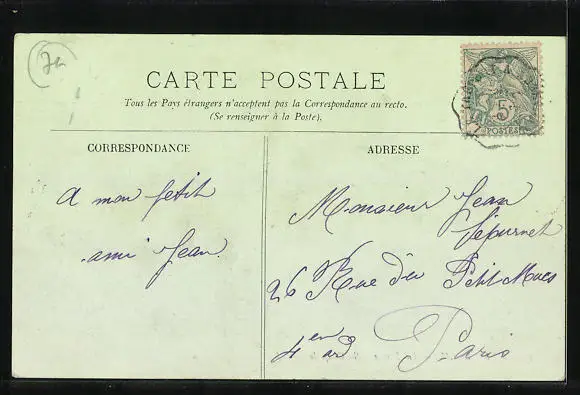 CARTE POSTALE
Tous les Pays étrangers n'acceptent pas la Correspondance au recto.
(Se renseigner à la Poste).
5
POSTES
CORRESPONDANCE
A mon petit
ami Jean.
ADRESSE
Monsieur Jean
Séjournet
26 Rue du Petit Musc
4en ard Paris